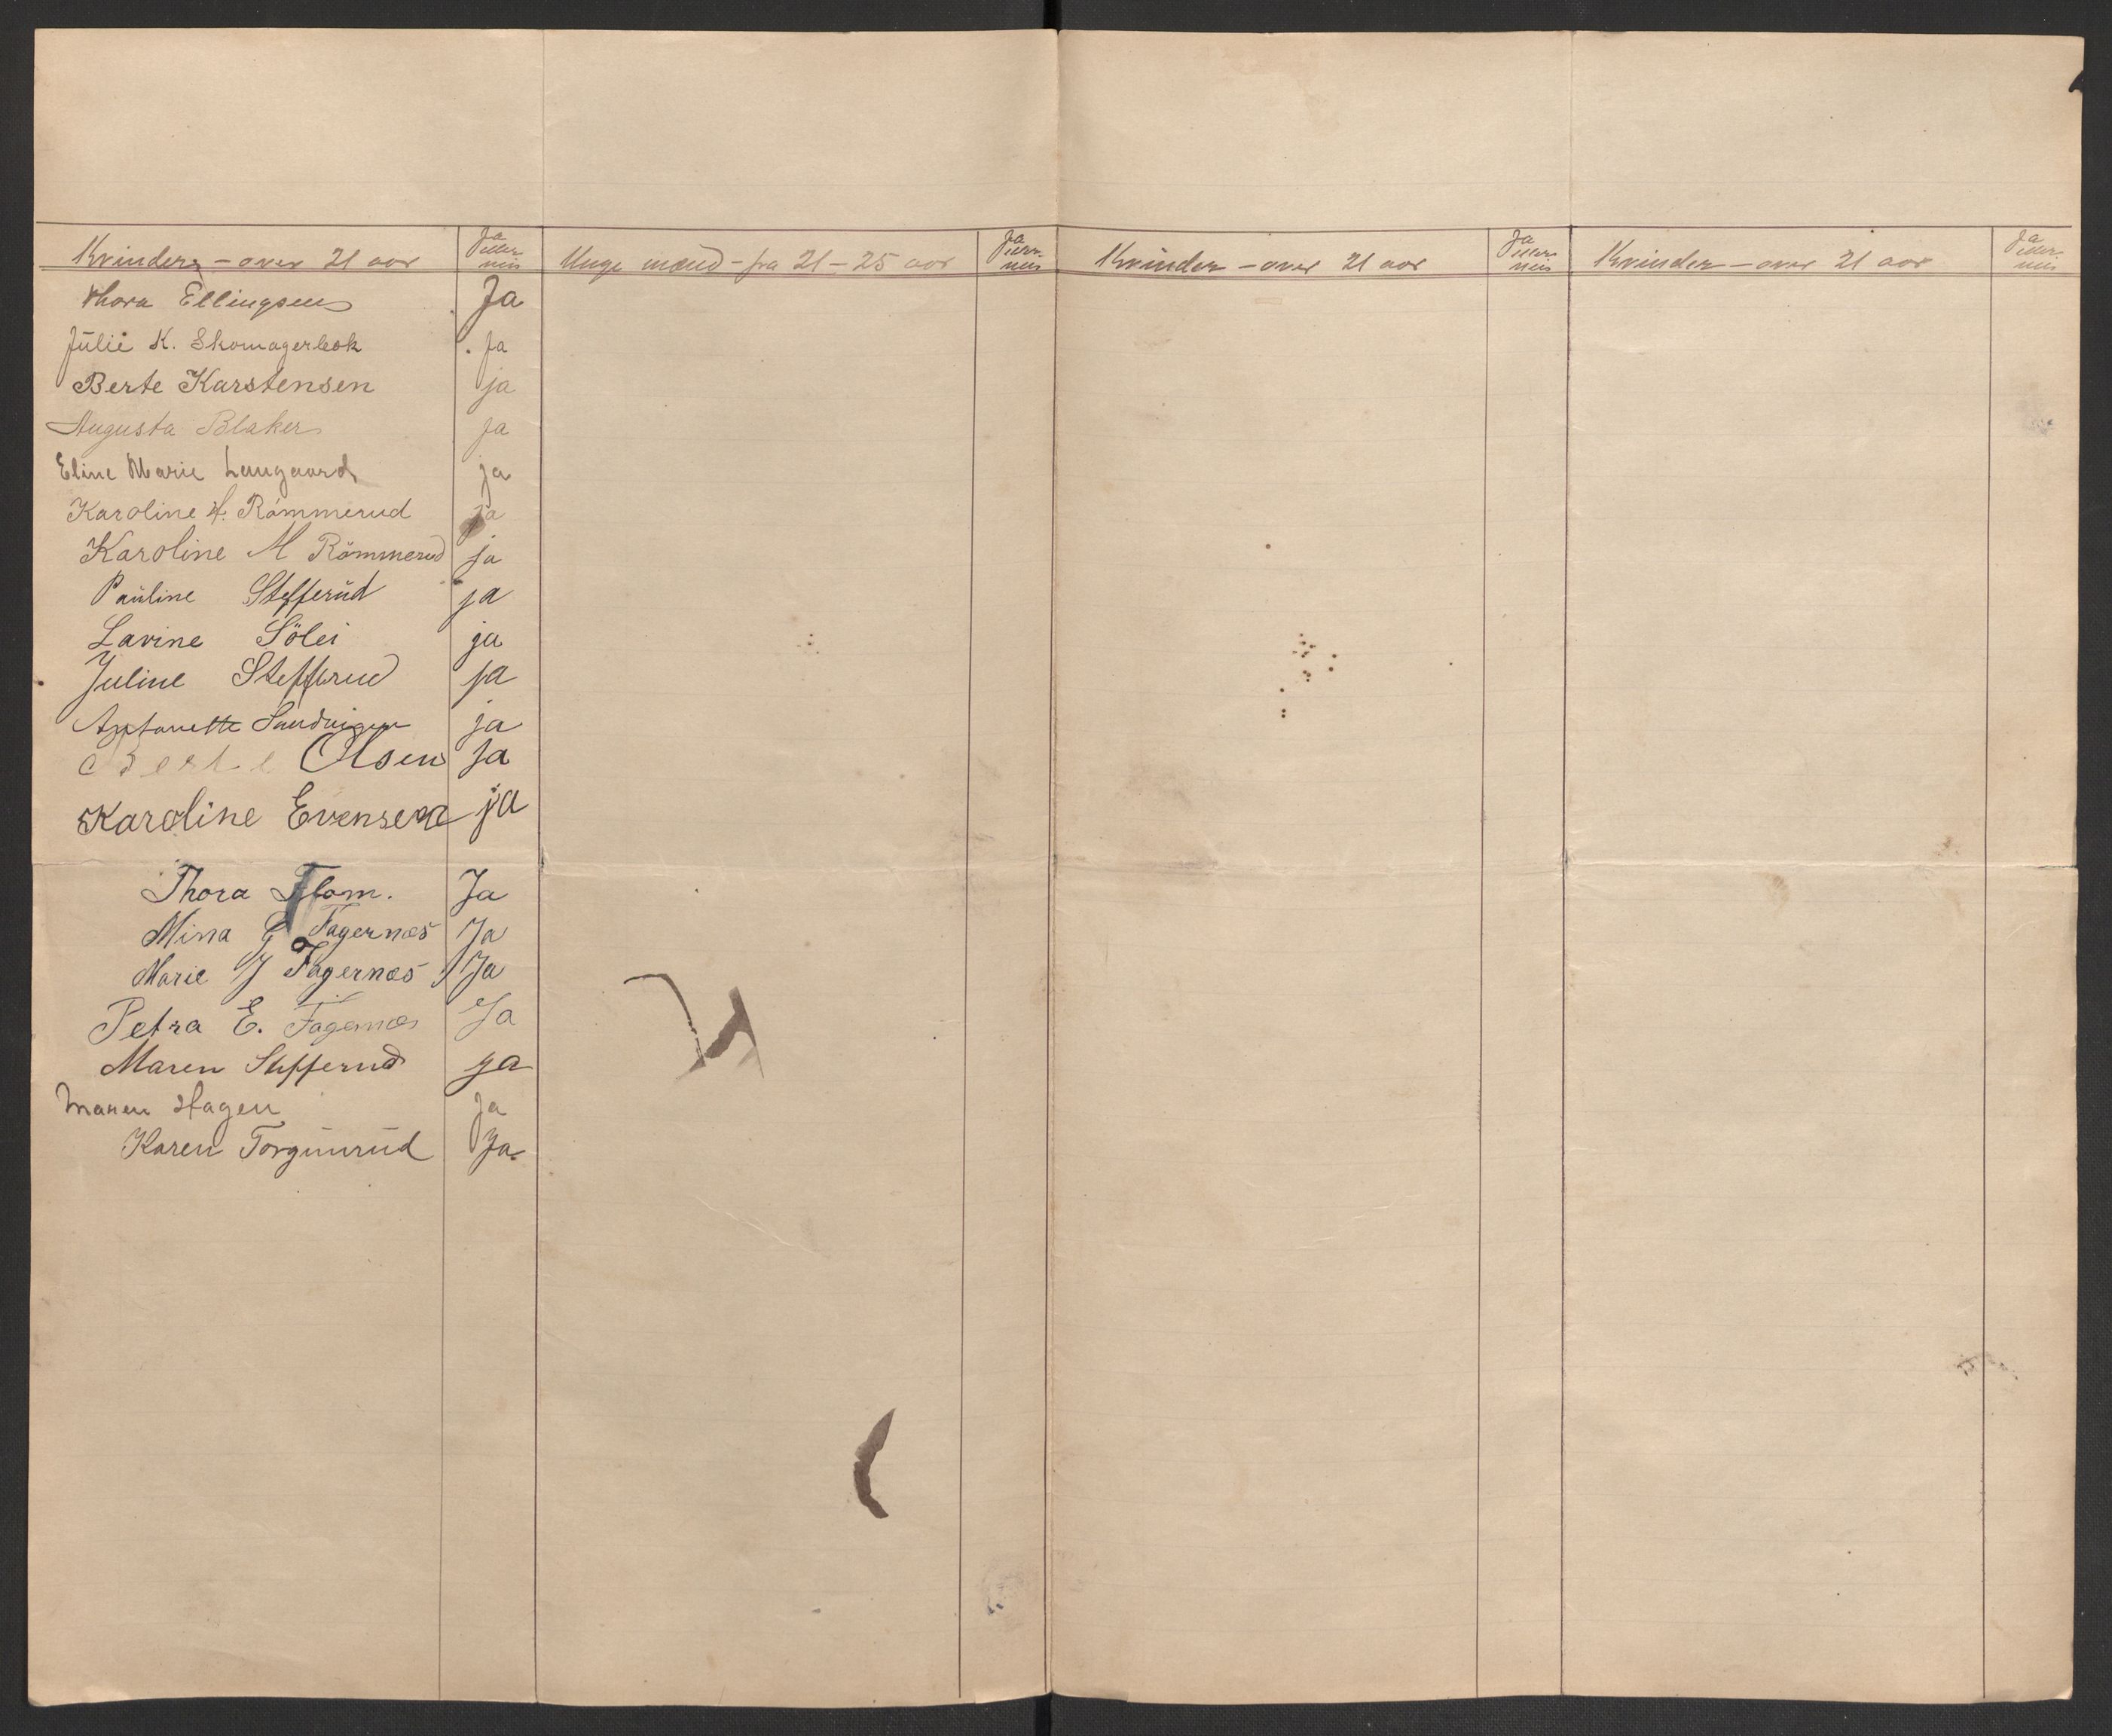 Kvinder - over 21 aar Ja eller nei Unge mænd - fra 21-25 aar Ja eller nei Kvinder - over 21 aar Ja eller nei Kvinder - over 21 aar Ja eller nei
Thora Ellingsen Ja
Julie K. Skomagerbøk Ja
Berte Karstensen ja
Augusta Blaker Ja
Eline Marie Laugaard ja
Karoline H. Römmerud ja
Karoline M Römmerud ja
Pauline Stefferud ja
Lavine Sölei ja
Juline Stefferud ja
Antonette Sandvigen ja
Berte Olsen Ja
Karoline Evensen ja
Thora Flom. Ja
Mina G Fagernæs Ja
Marie J Fagernæs Ja
Petra E. Fagernæs Ja
Maren Stefferud ja
Maren Hagen Ja
Karen Torgunrud Ja